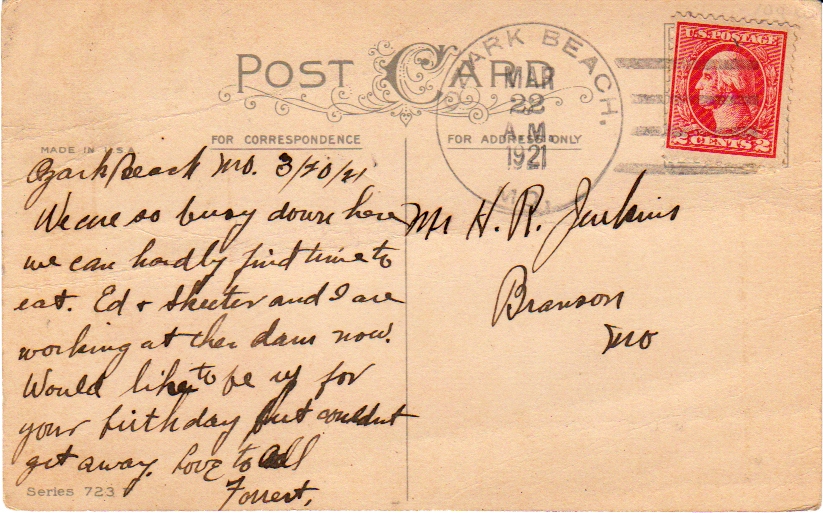 POST CARD
OZARK BEACH.
MAR
22
A.M.
1921
MO.
U.S. POSTAGE
2 CENTS 2
MADE IN U.S.A
FOR CORRESPONDENCE
FOR ADDRESS ONLY
Ozark Beach Mo. 3/20/21
We are so busy down here
we can hardly find time to
eat. Ed + Skeeter and I are
working at the dam now.
Would like to be up for
your birthday but couldnt
get away. Love to all
Forrest.
Mr H. R. Jenkins
Branson
Mo
Series 723